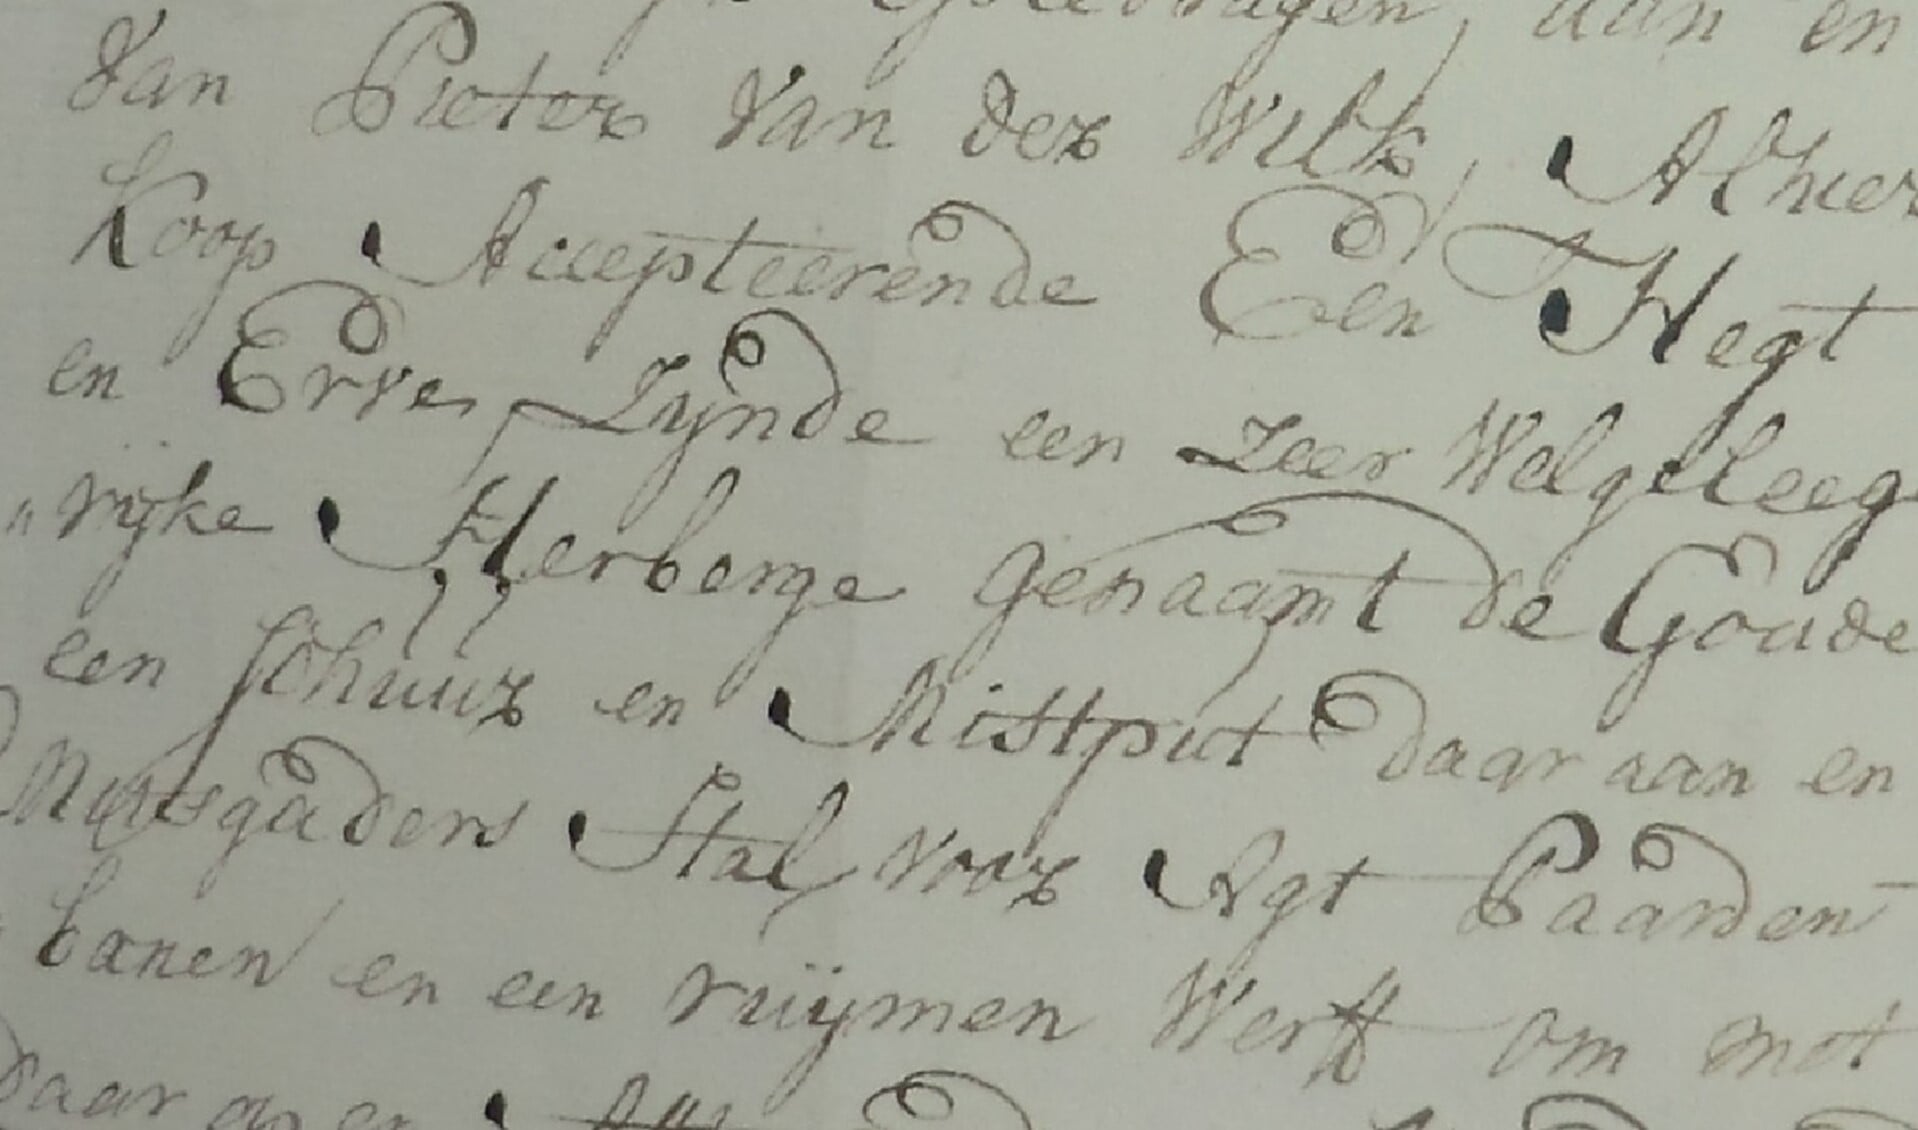 opgedragen, aan en
Van Pieter Van der Wilk, Alhier
Koop Accepteerende Een Hegt
en Erve, Zijnde een zeer Welgeleeg
„rijke Herberge genaamt de Goude
een schuur en Mistput daar aan en
Mitsgaders Stal voor Agt Paarden
banen en een ruijmen Werff om met
daar